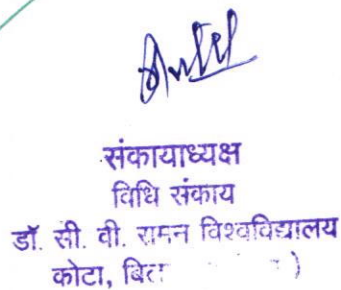 संकायाध्यक्ष
विधि संकाय
डॉ. सी. वी. रामन विश्वविद्यालय
कोटा,